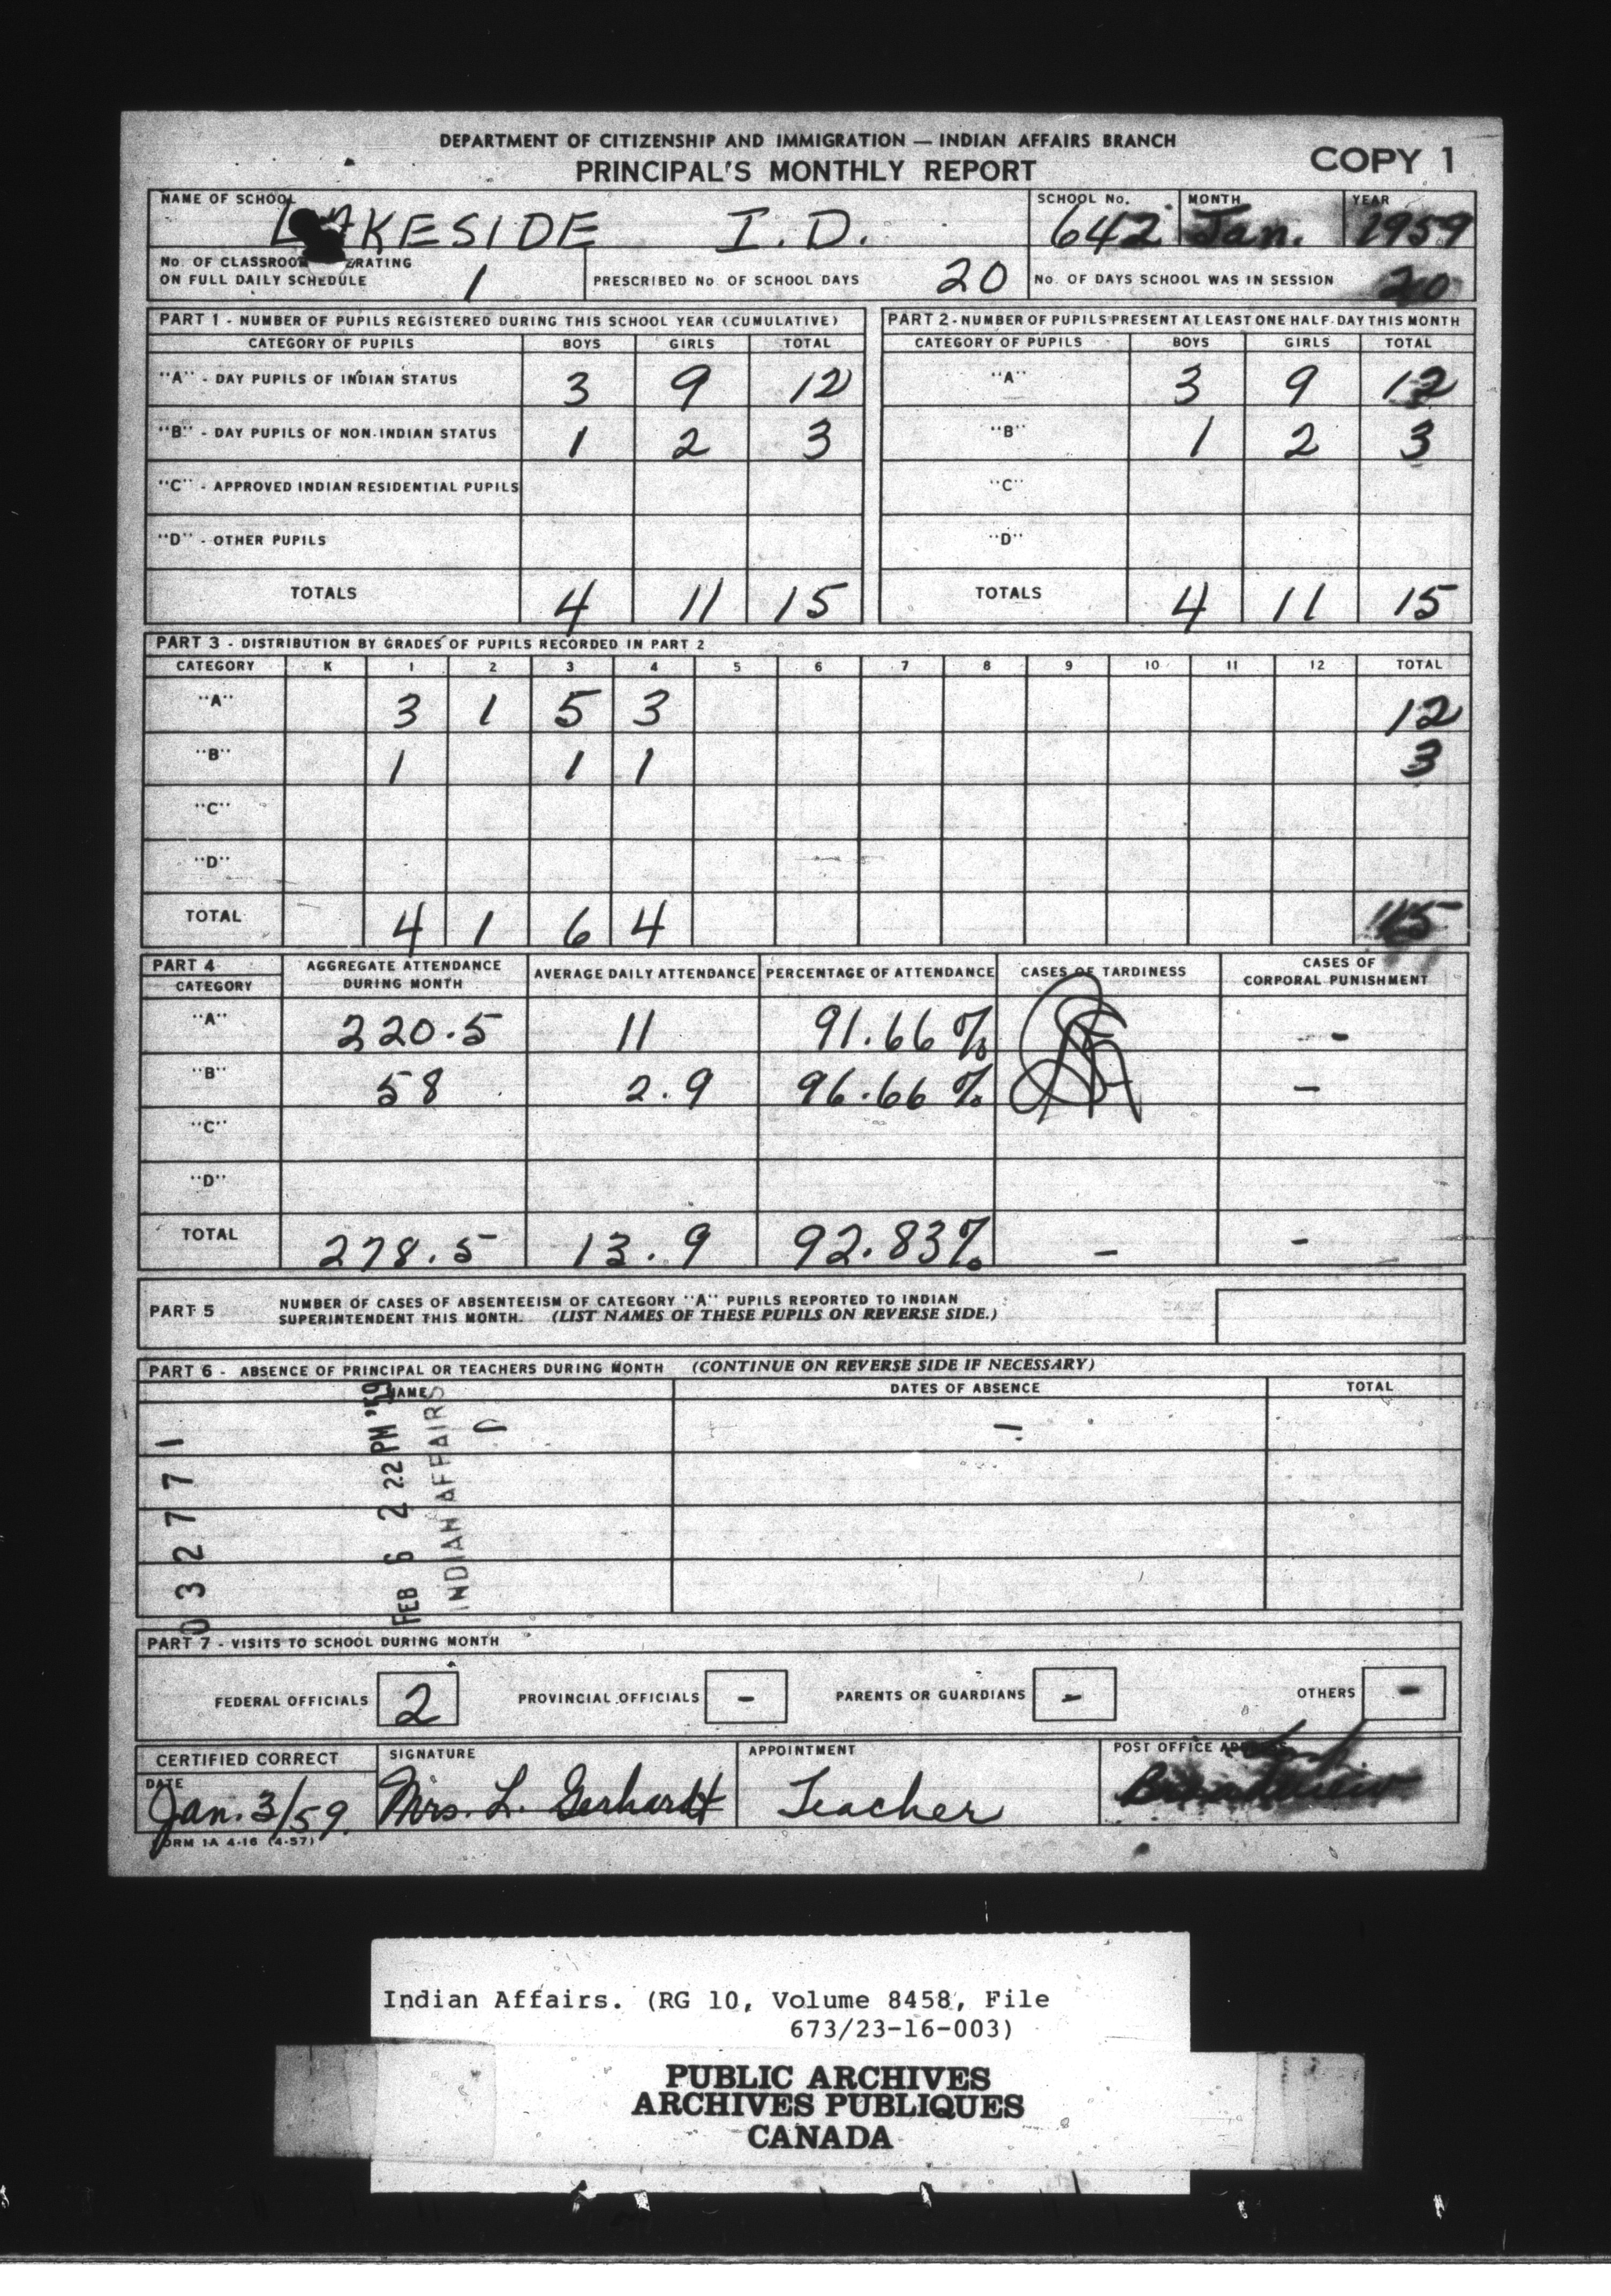 DEPARTMENT OF CITIZENSHIP AND IMMIGRATION — INDIAN AFFAIRS BRANCH
PRINCIPAL'S MONTHLY REPORT COPY 1
NAME OF SCHOOL LAKESIDE I.D. SCHOOL No. 642 MONTH Jan. YEAR 1959
No. OF CLASSROOM ERATING
ON FULL DAILY SCHEDULE 1 PRESCRIBED No. OF SCHOOL DAYS 20 No. OF DAYS SCHOOL WAS IN SESSION 20
PART 1 - NUMBER OF PUPILS REGISTERED DURING THIS SCHOOL YEAR (CUMULATIVE) PART 2 - NUMBER OF PUPILS PRESENT AT LEAST ONE HALF-DAY THIS MONTH
CATEGORY OF PUPILS BOYS GIRLS TOTAL CATEGORY OF PUPILS BOYS GIRLS TOTAL
"A" - DAY PUPILS OF INDIAN STATUS 3 9 12 "A" 3 9 12
"B" - DAY PUPILS OF NON-INDIAN STATUS 1 2 3 "B" 1 2 3
"C" - APPROVED INDIAN RESIDENTIAL PUPILS "C"
"D" - OTHER PUPILS "D"
TOTALS 4 11 15 TOTALS 4 11 15
PART 3 - DISTRIBUTION BY GRADES OF PUPILS RECORDED IN PART 2
CATEGORY K 1 2 3 4 5 6 7 8 9 10 11 12 TOTAL
"A" 3 1 5 3 12
"B" 1 1 1 3
"C"
"D"
TOTAL 4 1 6 4 15
PART 4 CATEGORY AGGREGATE ATTENDANCE DURING MONTH AVERAGE DAILY ATTENDANCE PERCENTAGE OF ATTENDANCE CASES OF TARDINESS CASES OF CORPORAL PUNISHMENT
"A" 220.5 11 91.66% -
"B" 58 2.9 96.66% -
"C"
"D"
TOTAL 278.5 13.9 92.83% - -
PART 5 NUMBER OF CASES OF ABSENTEEISM OF CATEGORY "A" PUPILS REPORTED TO INDIAN
SUPERINTENDENT THIS MONTH. (LIST NAMES OF THESE PUPILS ON REVERSE SIDE.)
PART 6 - ABSENCE OF PRINCIPAL OR TEACHERS DURING MONTH (CONTINUE ON REVERSE SIDE IF NECESSARY)
NAME DATES OF ABSENCE TOTAL
-
032771
FEB 6 2 22 PM '59
INDIAN AFFAIRS
PART 7 - VISITS TO SCHOOL DURING MONTH
FEDERAL OFFICIALS 2 PROVINCIAL OFFICIALS - PARENTS OR GUARDIANS - OTHERS -
CERTIFIED CORRECT SIGNATURE APPOINTMENT POST OFFICE
DATE Jan. 3/59. Mrs. L. Gerhardt Teacher
FORM 1A 4-16 (4-57)
Indian Affairs. (RG 10, Volume 8458, File
673/23-16-003)
PUBLIC ARCHIVES
ARCHIVES PUBLIQUES
CANADA